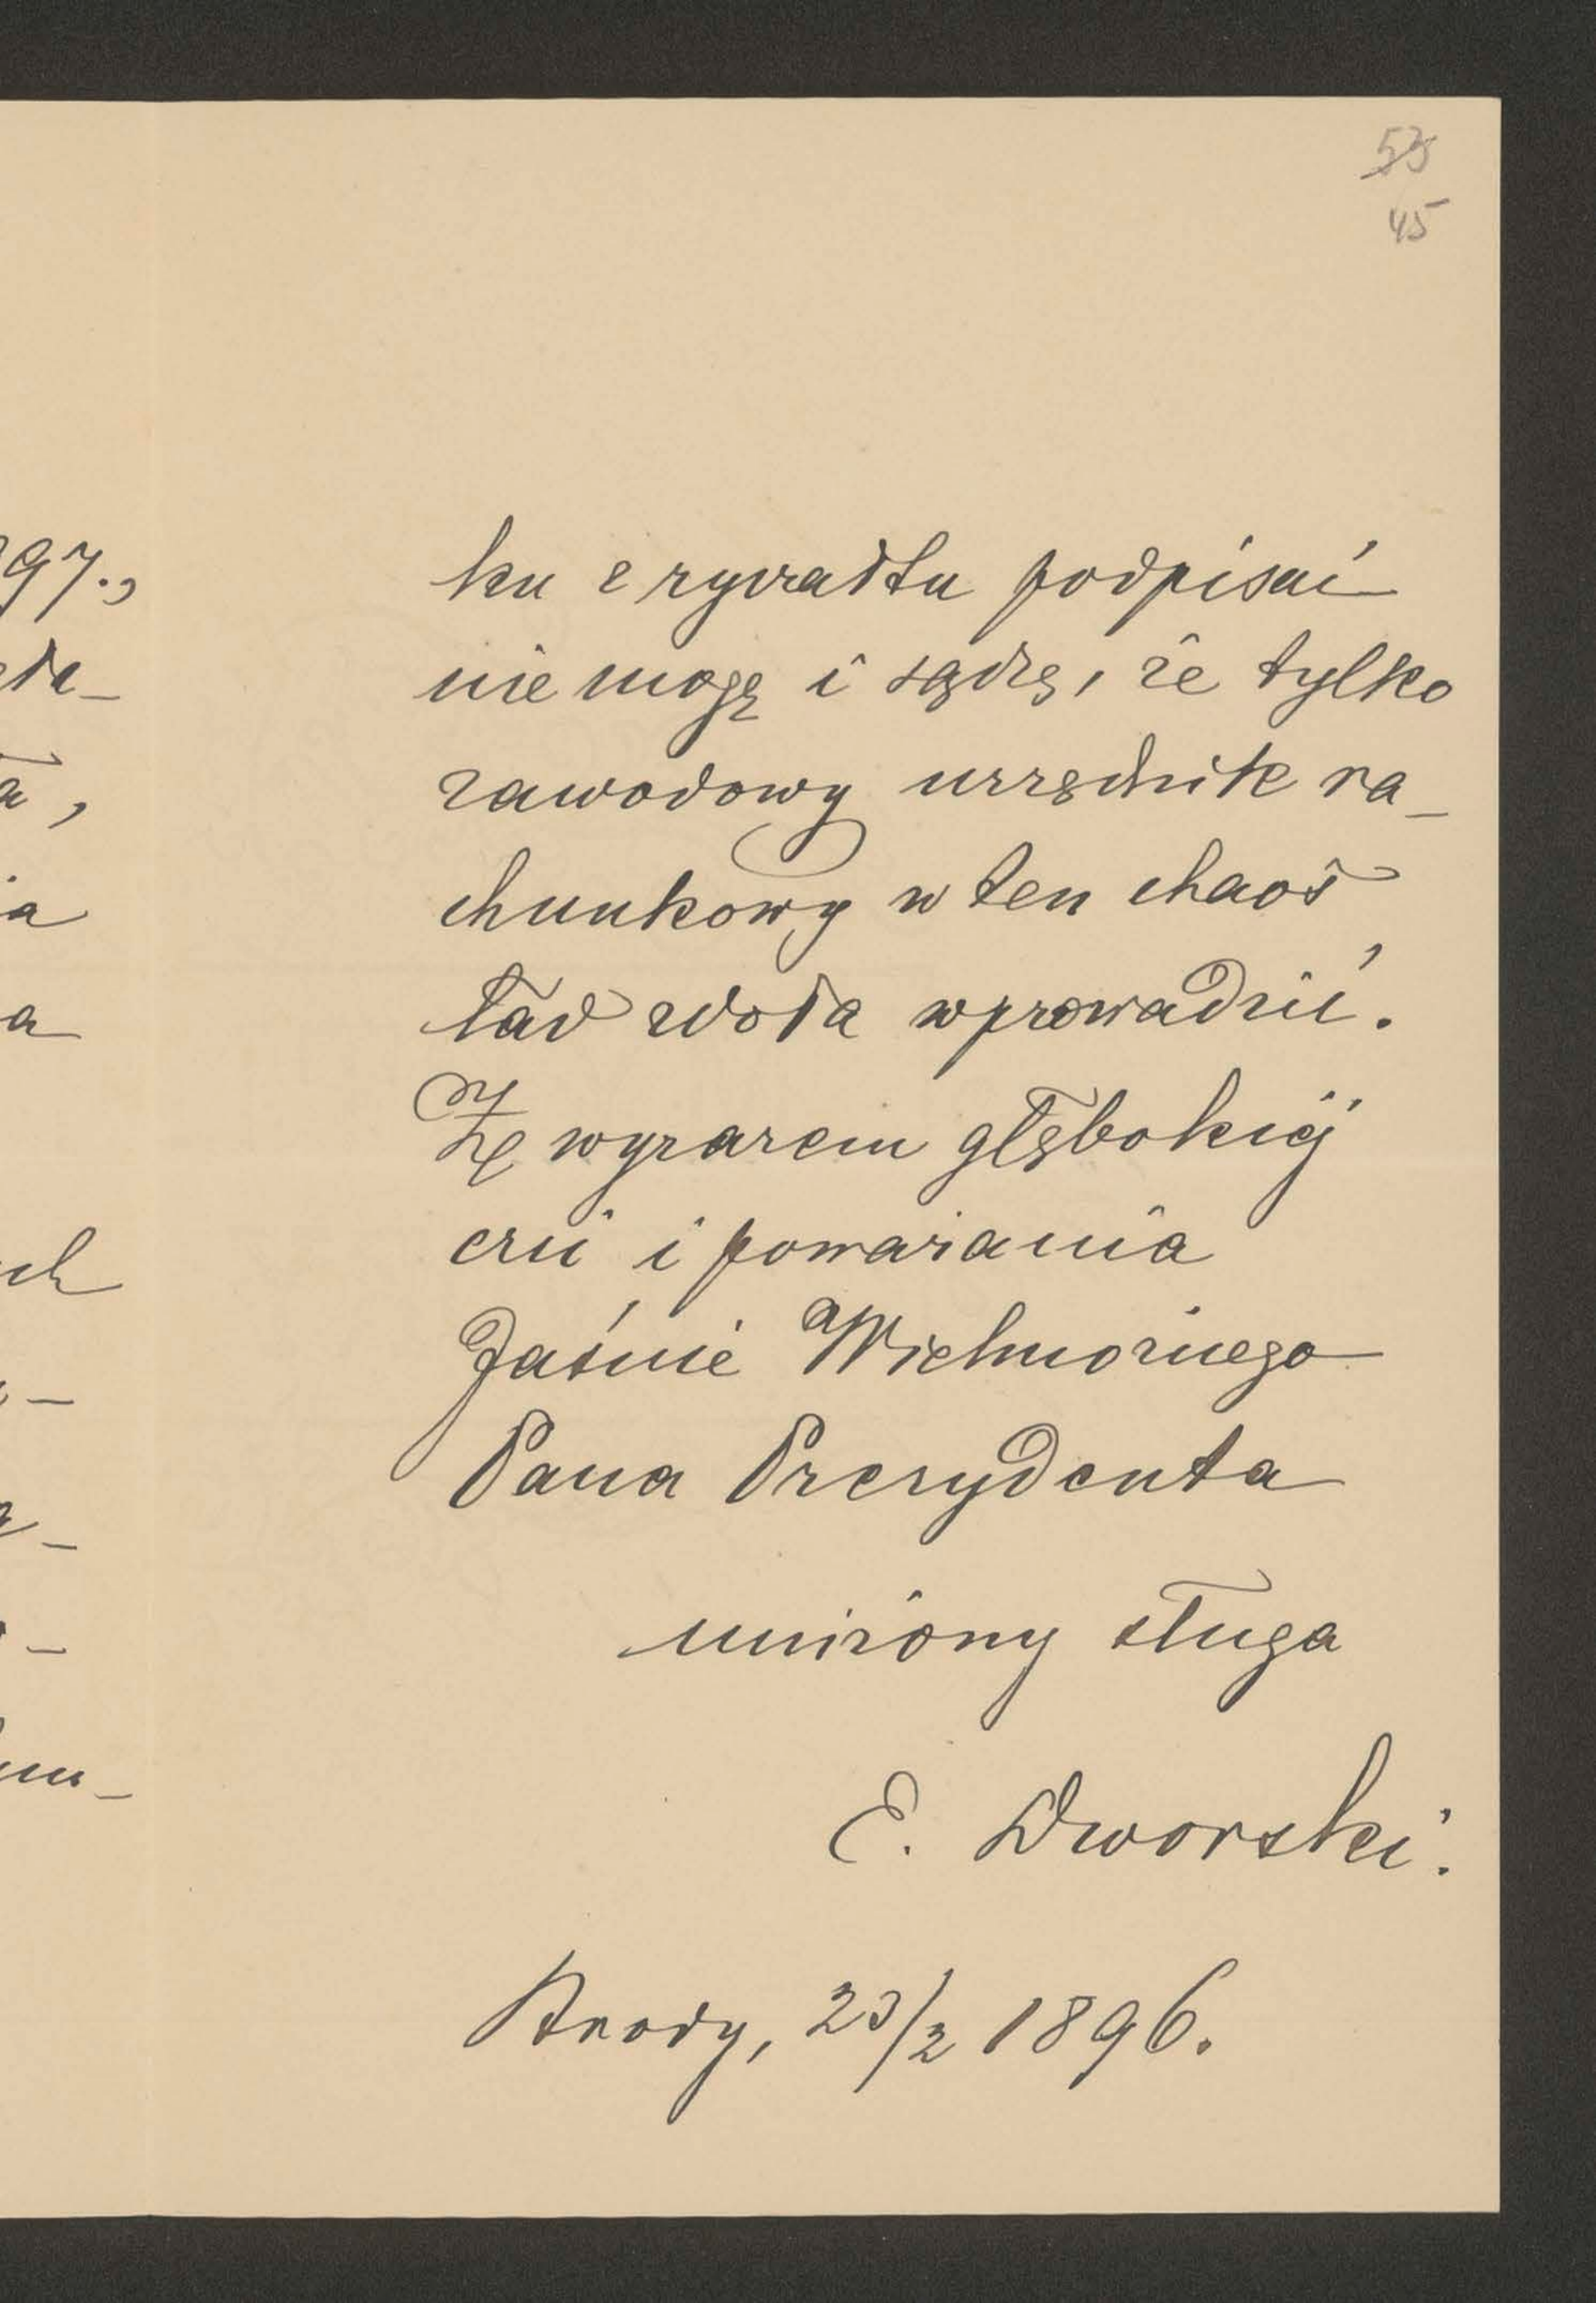 53
45
97.,
ku z ryczałtu podpisać
nie mogę i sądzę, że tylko
zawodowy urzędnik ra_
chunkowy w ten chaos
ład zdoła wprowadzić.
Z wyrazem głębokiéj
czci i poważania
Jaśnie Wielmożnego
Pana Prezydenta
uniżony sługa
E. Dworski.
Brody, 23/2 1896.